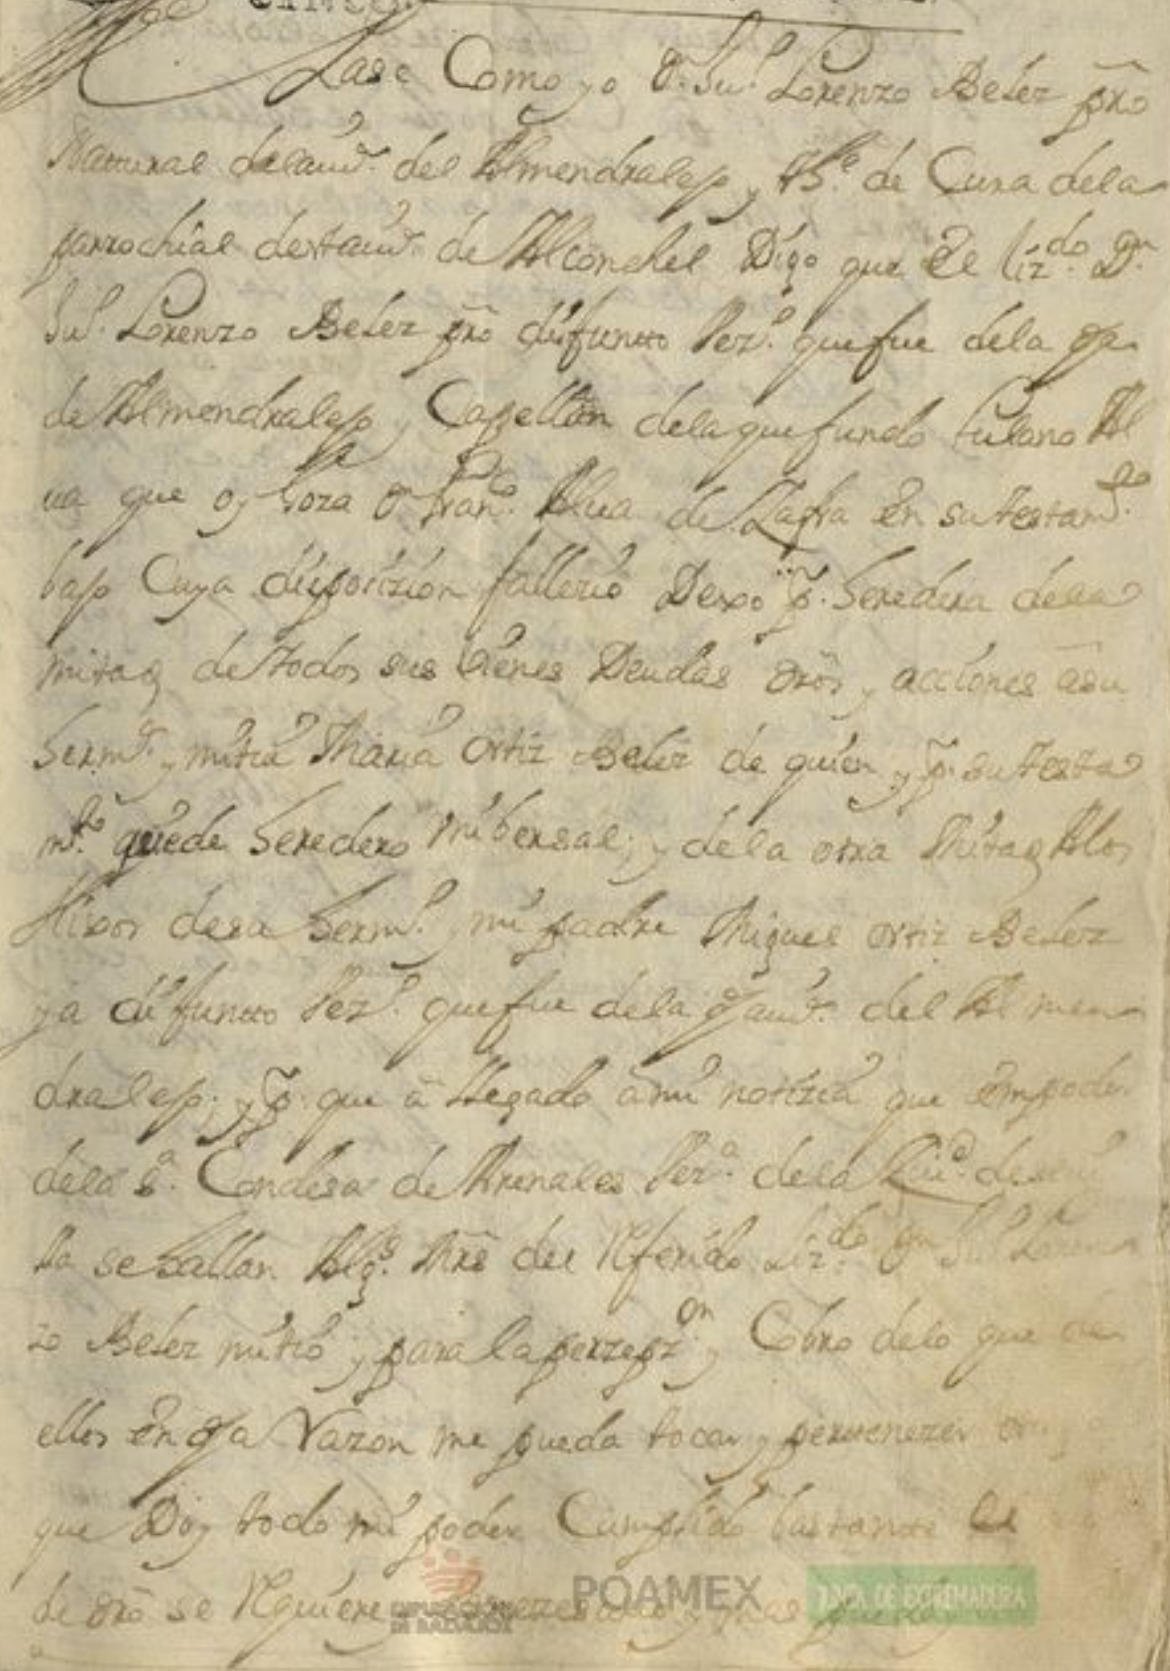 Sase Como yo Dn. Juº. Lorenzo Belez pro
Natural dela uª. del Almendralejo y thte. de Cura dela
parrochial desta uª. de Alconchel Digo que el lizdo. Dn.
Juº. Lorenzo Belez pro difunto Vezº. que fue dela dha
de Almendralejo y Capellan dela que fundo Al
ua que oy Goza Dn Franco. Alua de Zafra en su testamto.
bajo Cuya disposizion fallezio Dexo pr. heredera dela
mitad de todos sus bienes Deudas dros y acciones a su
hermª. y mi tia Maria Ortiz Belez de quien y pr. su testa
mto. quede heredero unibersal; y dela otra Mitad Alos
Hixos de su hermº. y mi padre Miguel Ortiz Belez
ya difunto Vezº. que fue dela dha uª. del Almen
dralejo; y pr. que a llegado a mi notizia que en poder
dela Sª. Condesa de Arenales Vezª. dela Ciud. de
se hallan Algs. Mrs del Referido Lizdo. Dn Juº Loren
zo Belez mi tio y para la perzepzon. y Cobro delo que de
ellos en dha Razon me pueda tocar y pertenezer
que Doy todo mi poder Cumplido bastante el
de dro se Requiere y es nezesario y mas
DIPUTACIÓN DE BADAJOZ
POAMEX
JUNTA DE EXTREMADURA